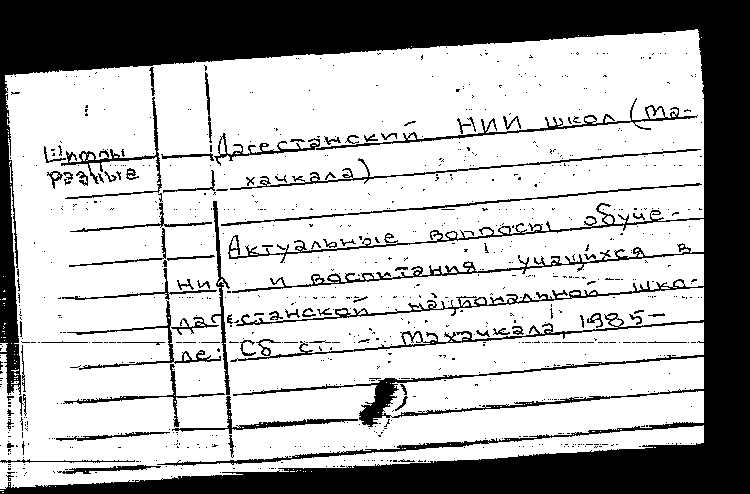 Дагестанский НИИ школ (Ма-
Шифры
разные
хачкала)
Актуальные вопросы обуче-
ния и воспитания учащихся в
дагестанской национальной шко-
ле: Сб ст. - Махачкала, 1985-